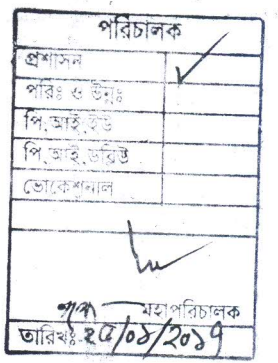 পরিচালক
প্রশাসন
পরিঃ ও উন্নঃ
পি,আই,ইউ
পি,আই,ডব্লিউ
ভোকেশনাল
মহাপরিচালক
তারিখঃ ২৫/০১/২০১৭